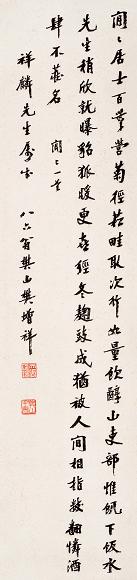 閒閒居士百業營菊徑菘畦取次行如量飲醇山吏部惟
先生稍欣就曝貂狐暖更喜經冬麴豉成猶被人間相指數翻憐酒
肆不藏名　閒閒一首
祥麟先生屬書
八六翁樊山樊增祥